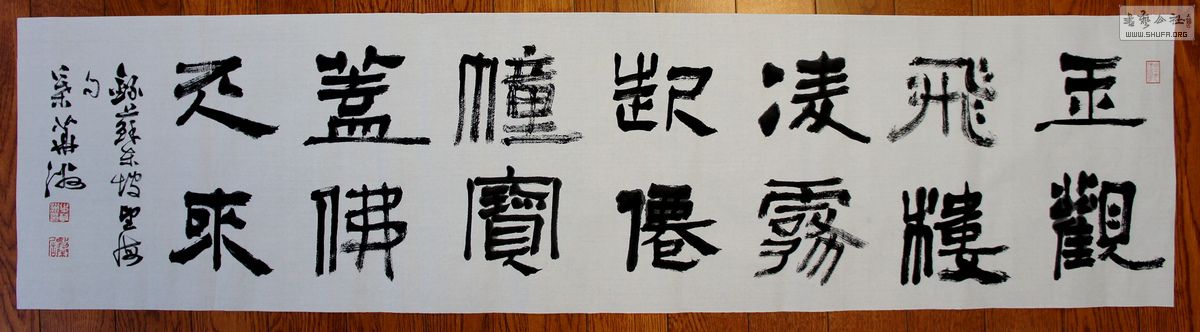 玉觀
飛樓
凌霧
起僊
幢寶
蓋佛
天來
錄蘇東坡望海
句
書藝公社
WWW.SHUFA.ORG